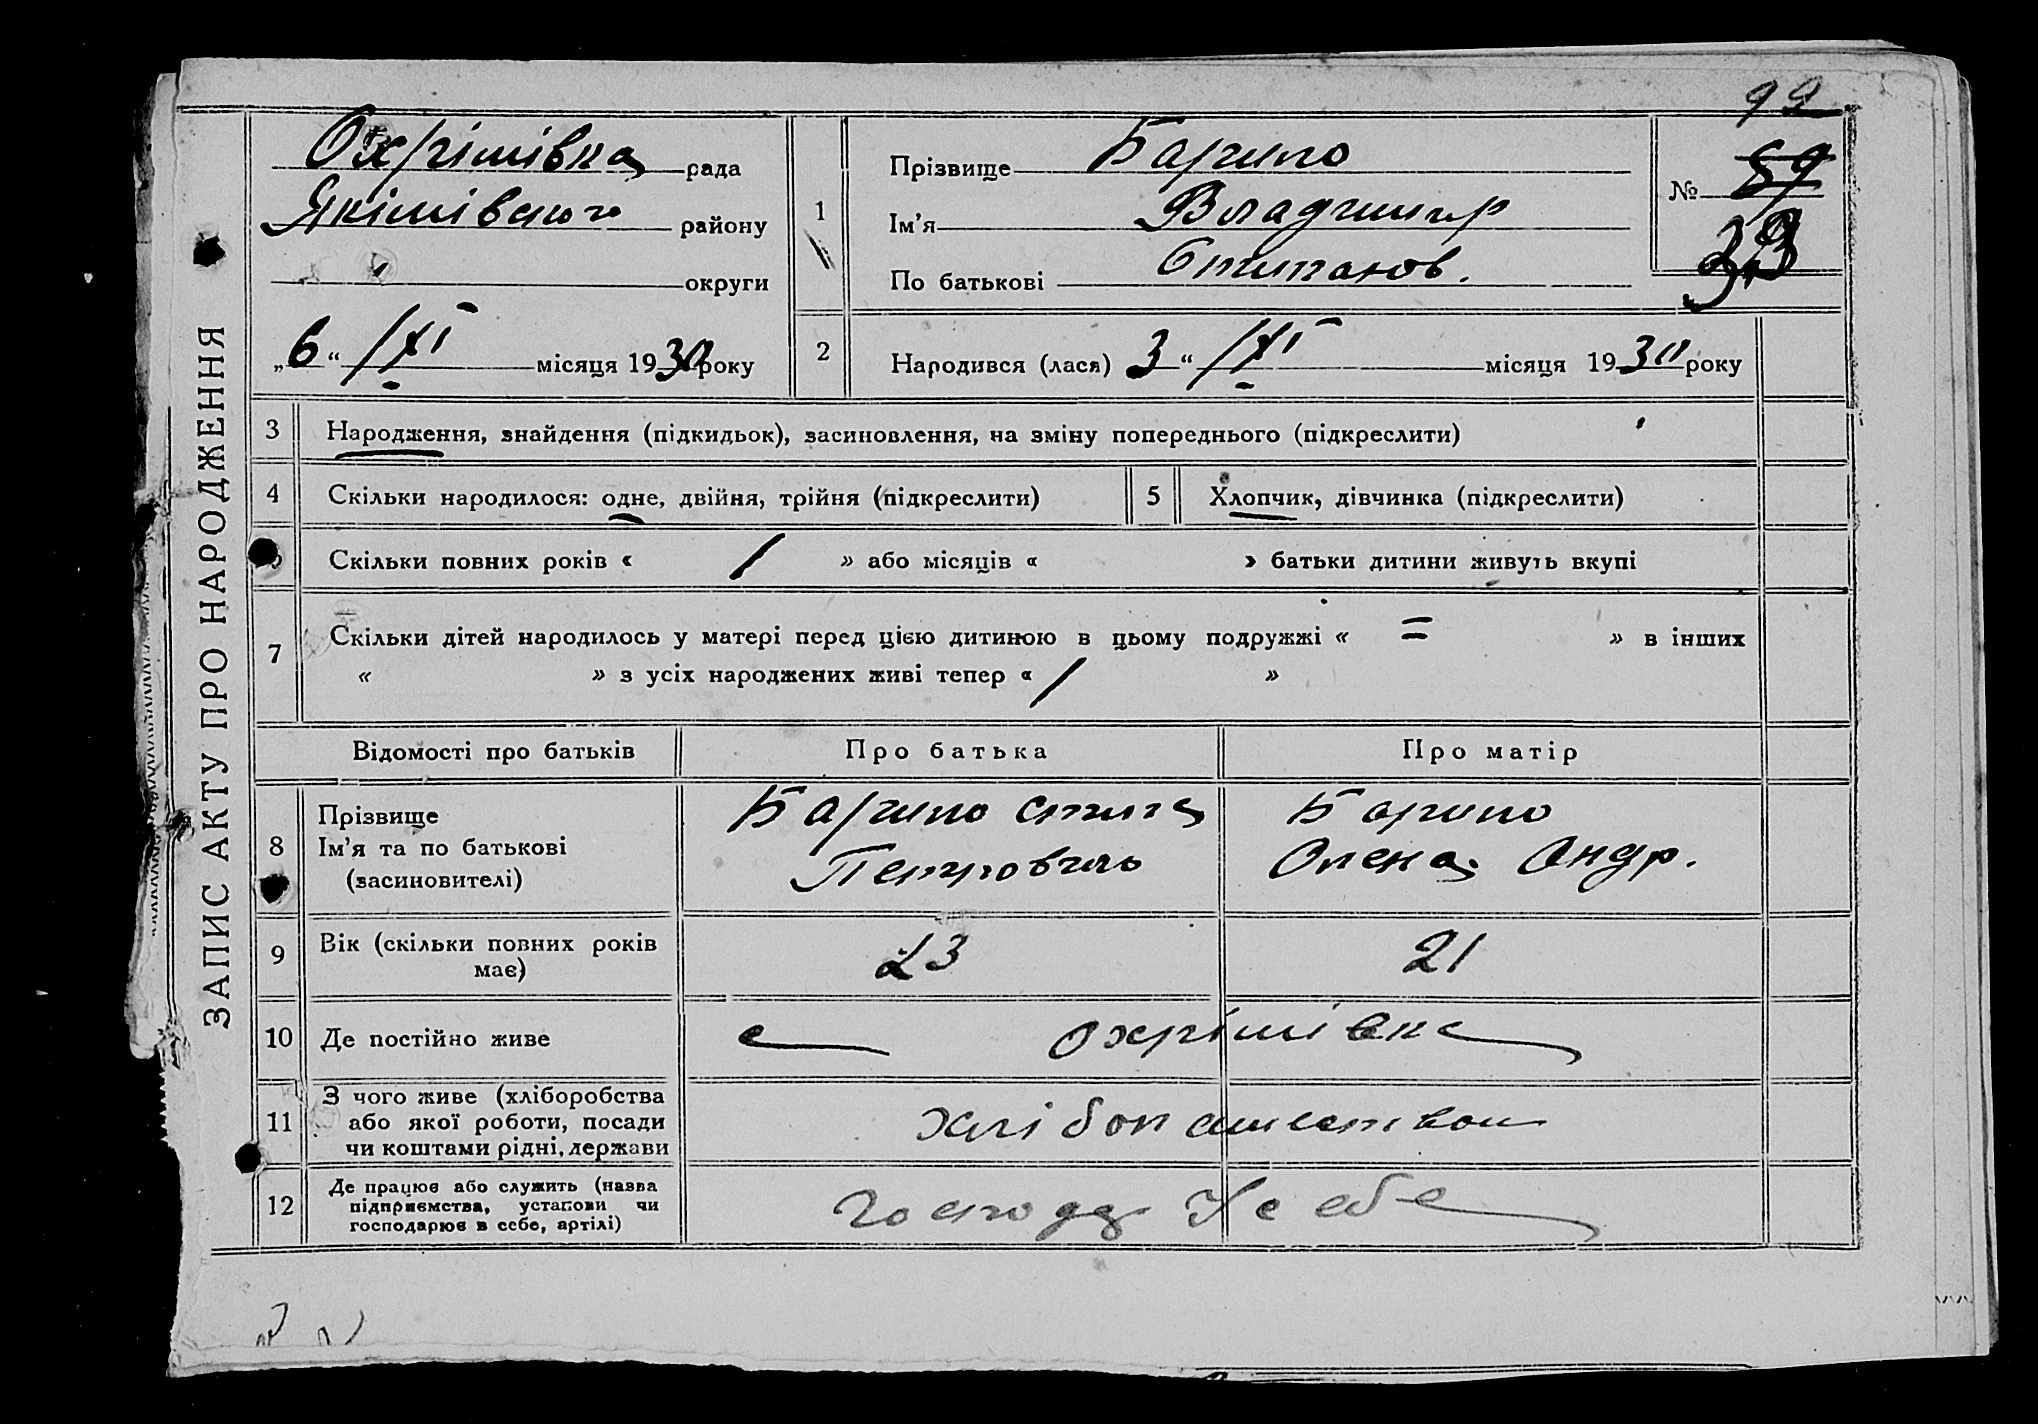 92
Охрімівка рада
Якімівського району
округи
„6“ /XI місяця 1930 року
1
Прізвище Барило
Ім'я Владимир
По батькові Степанов.
№ 59
2
Народився (лася) 3 “ /XI місяця 1930 року
ЗАПИС АКТУ ПРО НАРОДЖЕННЯ
3 Народження, знайдення (підкидьок), засиновлення, на зміну попереднього (підкреслити)
4 Скільки народилося: одне, двійня, трійня (підкреслити)
5 Хлопчик, дівчинка (підкреслити)
Скільки повних років « 1 » або місяців « » батьки дитини живуть вкупі
7 Скільки дітей народилось у матері перед цією дитиною в цьому подружжі « = » в інших
« » з усіх народжених живі тепер « 1 »
Відомості про батьків Про батька Про матір
8 Прізвище
Ім'я та по батькові
(засиновителі)
Барило
Петрович
Барило
Олена Андр.
9 Вік (скільки повних років
має)
23 21
10 Де постійно живе с Охрімівка
11 З чого живе (хліборобства
або якої роботи, посади
чи коштами рідні, держави
хлібопашеством
12 Де працює або служить (назва
підприємства, установи чи
господарює в себе, артілі)
господ. У себе